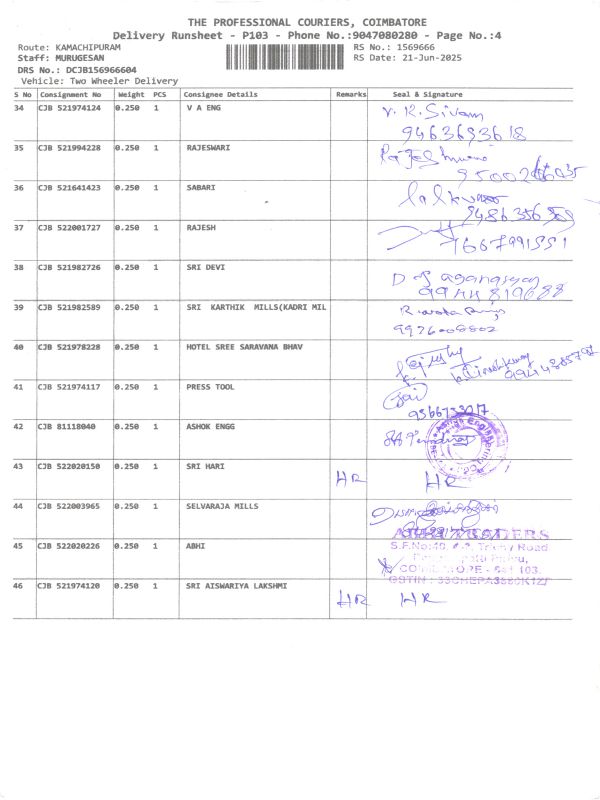 THE PROFESSIONAL COURIERS, COIMBATORE
Delivery Runsheet - P103 - Phone No.:9047080280 - Page No.:4
Route: KAMACHIPURAM RS No.: 1569666
Staff: MURUGESAN RS Date: 21-Jun-2025
DRS No.: DCJB156966604
Vehicle: Two Wheeler Delivery
S No Consignment No Weight PCS Consignee Details Remarks Seal & Signature
34 CJB 521974124 0.250 1 V A ENG V. K. Sivam
9463693618
35 CJB 521994228 0.250 1 RAJESWARI
36 CJB 521641423 0.250 1 SABARI
37 CJB 522001727 0.250 1 RAJESH
38 CJB 521982726 0.250 1 SRI DEVI
39 CJB 521982589 0.250 1 SRI KARTHIK MILLS(KADRI MIL
40 CJB 521978228 0.250 1 HOTEL SREE SARAVANA BHAV
41 CJB 521974117 0.250 1 PRESS TOOL
42 CJB 81118040 0.250 1 ASHOK ENGG
43 CJB 522020150 0.250 1 SRI HARI HR HR
44 CJB 522003965 0.250 1 SELVARAJA MILLS
45 CJB 522020226 0.250 1 ABHI
46 CJB 521974120 0.250 1 SRI AISWARIYA LAKSHMI HR HR